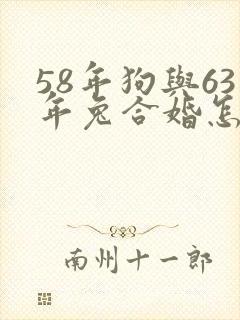 58年狗與63
年兔合婚怎
南州十一郎